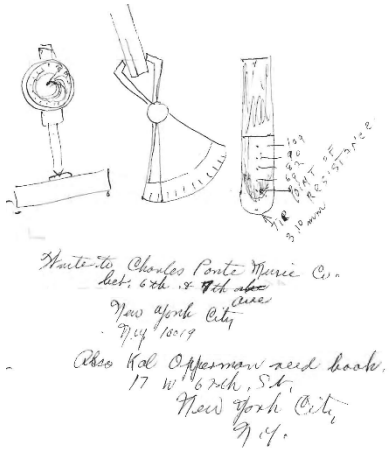 109
90
82
60
POINT OF
RESISTANCE
TIP
3.10 mm
Write to Charles Ponte Music Co.
bet. 6th & 7th
aves
New York City
N.Y. 10019
Also Kal Opperman reed book,
17 W 67th, St,
New York City,
N.Y.